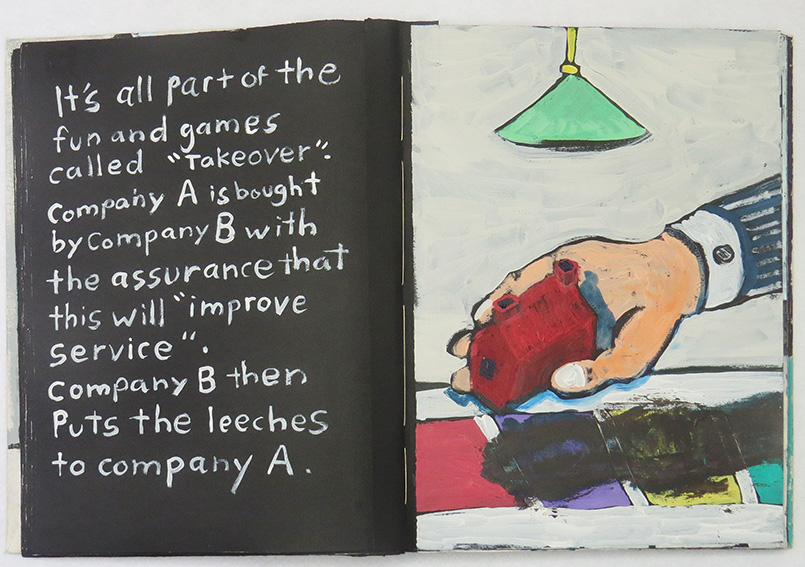 It's all part of the
fun and games
called "Takeover".
Company A is bought
by company B with
the assurance that
this will "improve
service".
Company B then
Puts the leeches
to company A.